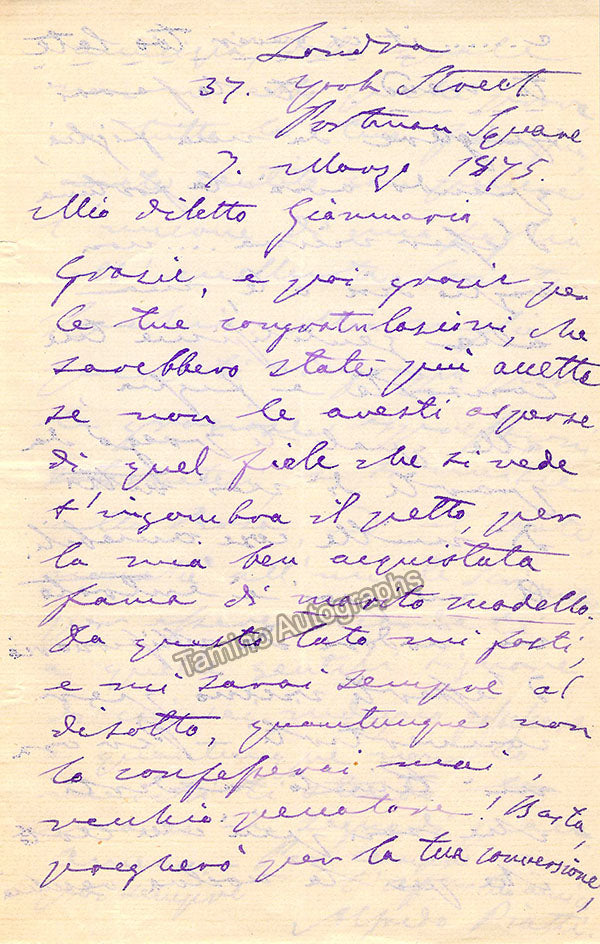 Londra
37. York Street
Portman Square
7. Marzo 1875.
Mio diletto Gianmaria
Grazie, e poi grazie per
le tue congratulazioni, che
sarebbero state più accette
se non le avesti asperse
di quel fiele che si vede
t'ingombra il petto, per
la mia ben acquistata
fama di marito modello.
Da questo lato mi fosti,
e mi sarai sempre al
disotto, quantunque non
lo confesserai mai,
vecchio peccatore! Basta,
pregherò per la tua conversione,
Tamino Autographs